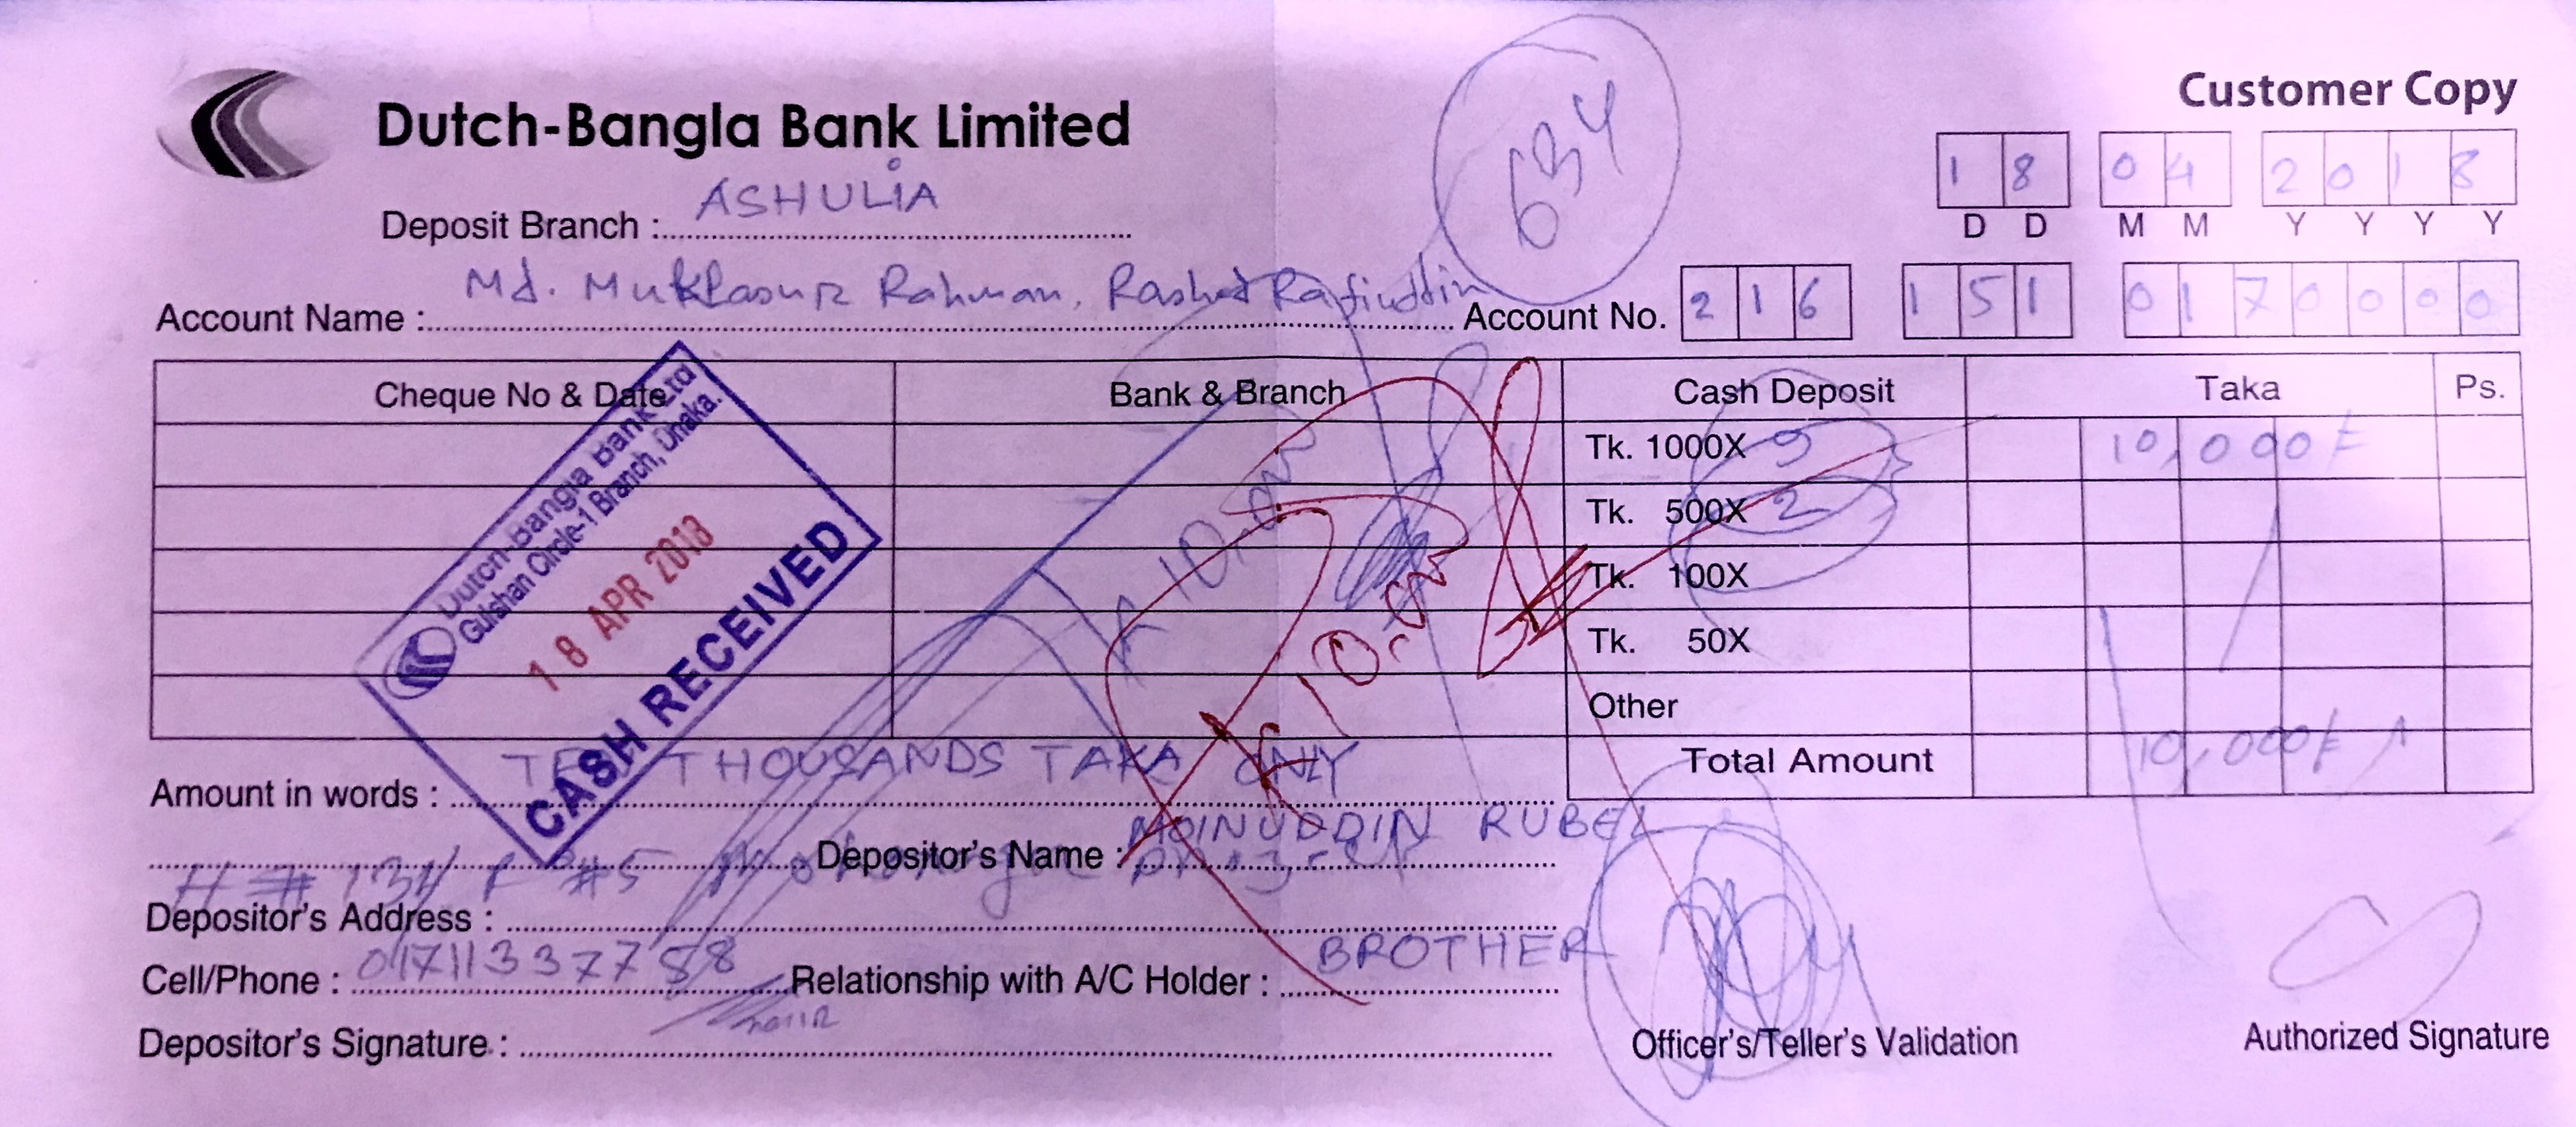 Customer Copy
Dutch-Bangla Bank Limited
634
18 04 2018
D D M M Y Y Y Y
Deposit Branch : ASHULIA
Account Name : Md. Muklasur Rahman, Rashed Rafiuddin Account No. 216 151 0170000
Cheque No & Date Bank & Branch Cash Deposit Taka Ps.
Tk. 1000X 9 10,000/=
Tk. 500X 2
Tk. 100X
Tk. 50X
Other
Total Amount 10,000/=
Dutch-Bangla Bank Ltd
Gulshan Circle-1 Branch, Dhaka.
18 APR 2018
CASH RECEIVED
Amount in words : TEN THOUSANDS TAKA ONLY
Depositor's Name : MOINUDDIN RUBEL
Depositor's Address : H # 134, R #5
Cell/Phone : 01711337758 Relationship with A/C Holder : BROTHER
Depositor's Signature :
Officer's/Teller's Validation Authorized Signature